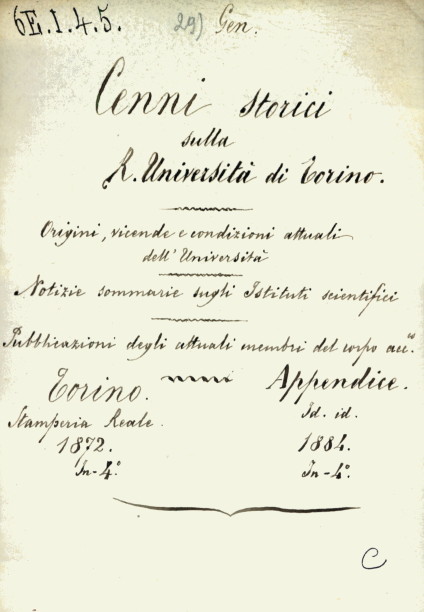 6E.I.4.5. 29) Gen.
Cenni storici
sulla
R. Università di Torino.
Origini, vicende e condizioni attuali
dell'Università
Notizie sommarie sugli Istituti scientifici
Pubblicazioni degli attuali membri del corpo acc.co
Torino. Appendice.
Stamperia Reale. Id. id.
1872. 1884.
In-4° In-4°
C